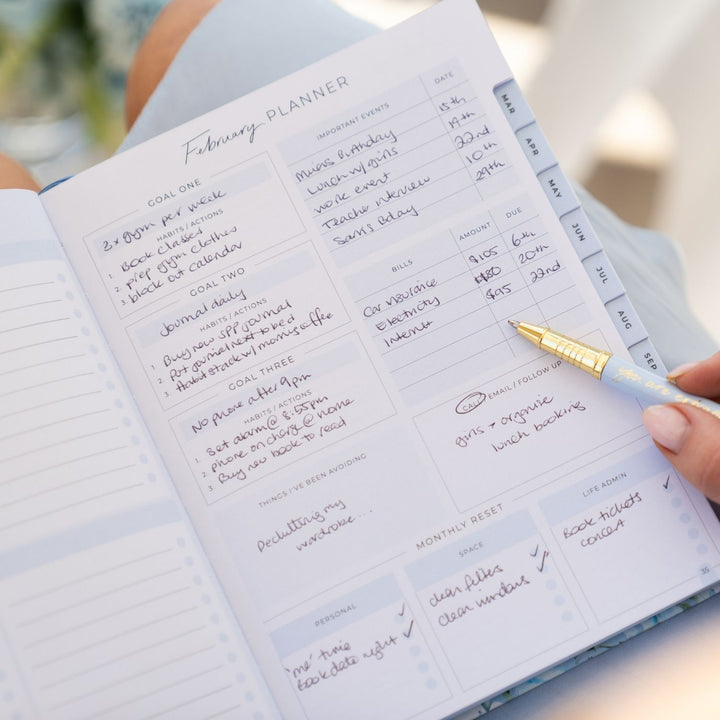 February PLANNER
GOAL ONE
3x gym per week
HABITS / ACTIONS
1. Book classes
2. prep gym clothes
3. block out calendar
GOAL TWO
Journal daily
HABITS / ACTIONS
1. Buy new SPP journal
2. Put journal next to bed
3. Habit stack w/ morning coffee
GOAL THREE
No phone after 9pm
HABITS / ACTIONS
1. Set alarm @ 8:55pm
2. phone on charge @ home
3. Buy new book to read
THINGS I'VE BEEN AVOIDING
Decluttering my
wardrobe...
IMPORTANT EVENTS DATE
Mum's Birthday 15th
Lunch w/ girls 19th
work event 22nd
Teacher interview 10th
Sam's Bday 29th
BILLS AMOUNT DUE
Car insurance $105 6th
Electricity $80 20th
Internet $95 22nd
CALL / EMAIL / FOLLOW UP
girls + organise
lunch booking
MONTHLY RESET
PERSONAL
'me' time ✓
Book date night ✓
SPACE
clean filters ✓
clean windows ✓
LIFE ADMIN
Book tickets ✓
concert
35
MAR
APR
MAY
JUN
JUL
AUG
SEP
you are